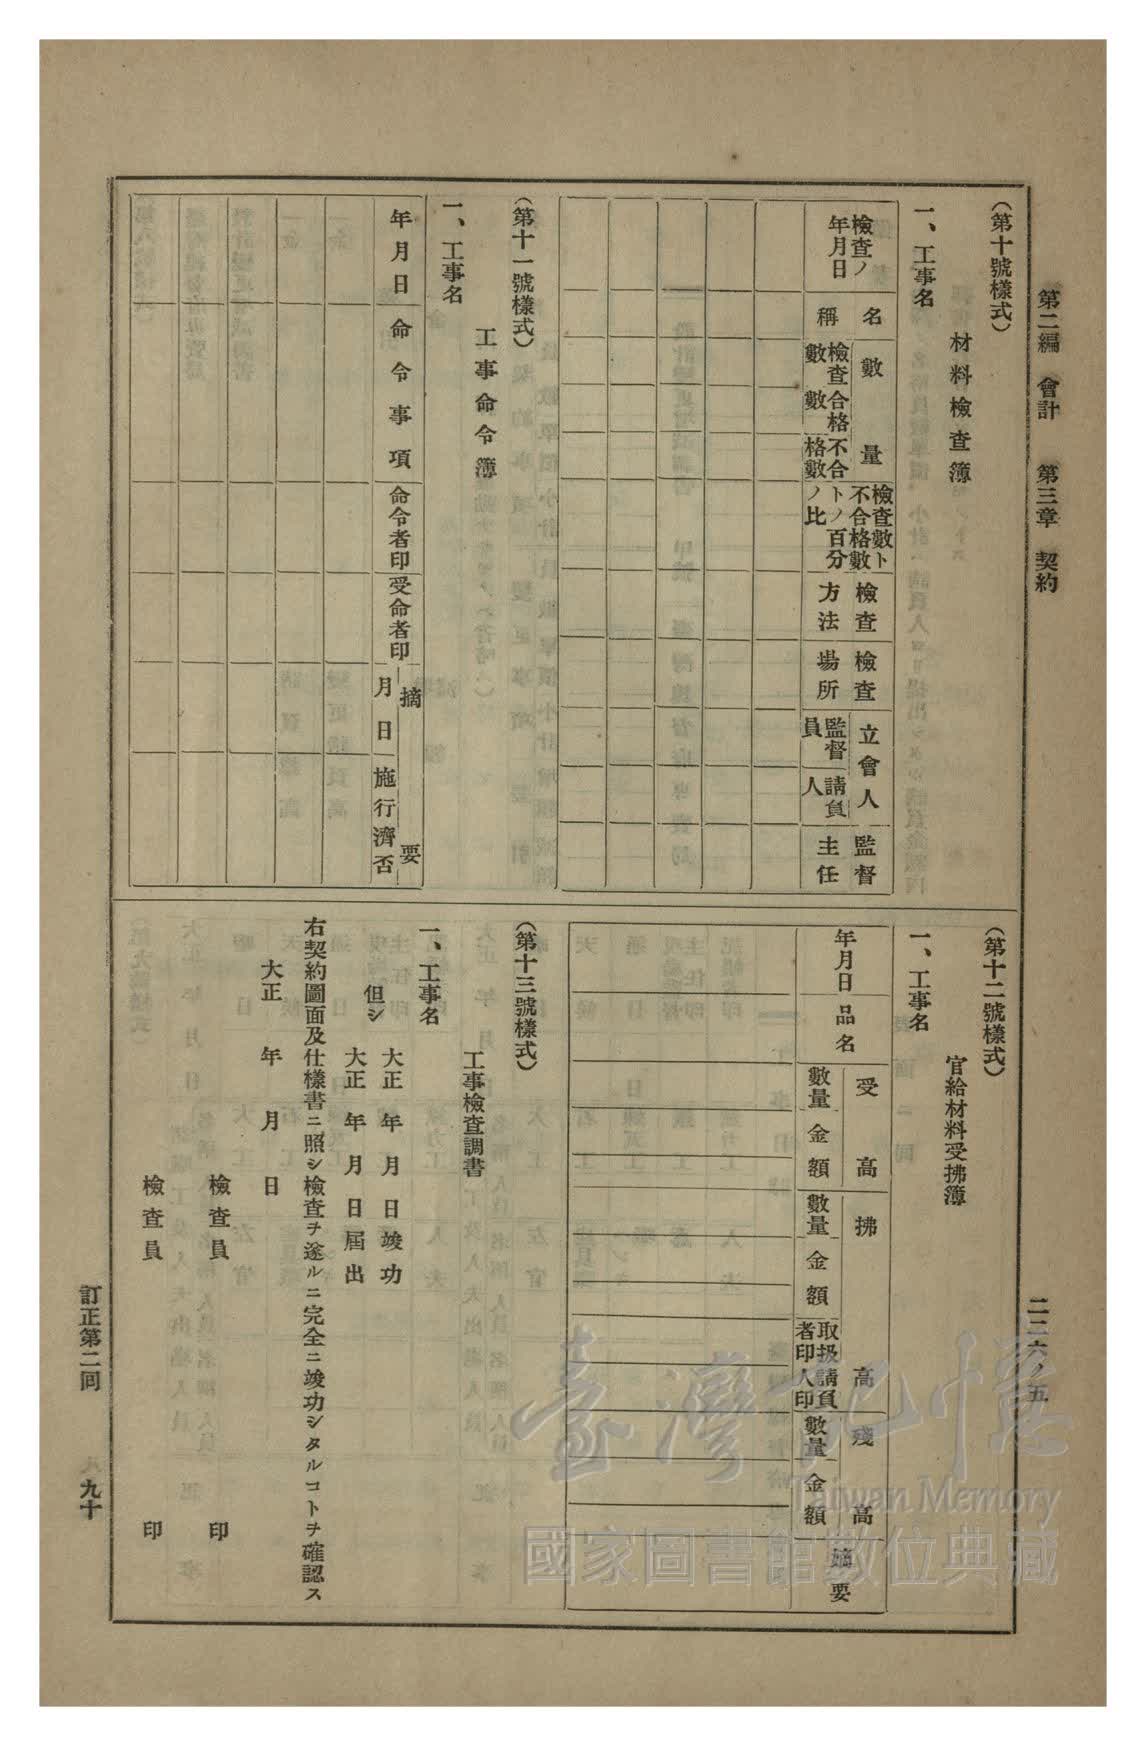 第二編　會計　　第三章　契約
二二六ノ五
（第十號樣式）
材料檢查簿
一、工事名
檢查ノ年月日
名稱
數量
檢查數
合格數
不合格數
檢查數ト不合格數トノ百分ノ比
檢查方法
檢查場所
立會人
監督員
請負人
監督主任
（第十一號樣式）
工事命令簿
一、工事名
年月日
命令事項
命令者印
受命者印
摘要
月日
施行濟否
（第十二號樣式）
官給材料受拂簿
一、工事名
年月日
品名
受高
數量
金額
拂高
數量
金額
取扱者印
請負人印
殘高
數量
金額
摘要
（第十三號樣式）
工事檢查調書
一、工事名
大正　年　月　日竣功
但シ
大正　年　月　日屆出
右契約圖面及仕樣書ニ照シ檢查ヲ遂ルニ完全ニ竣功シタルコトヲ確認ス
大正　　年　　月　　日
檢查員　　　　印
檢查員　　　　印
訂正第二回
九十
臺灣記憶
Taiwan Memory
國家圖書館數位典藏